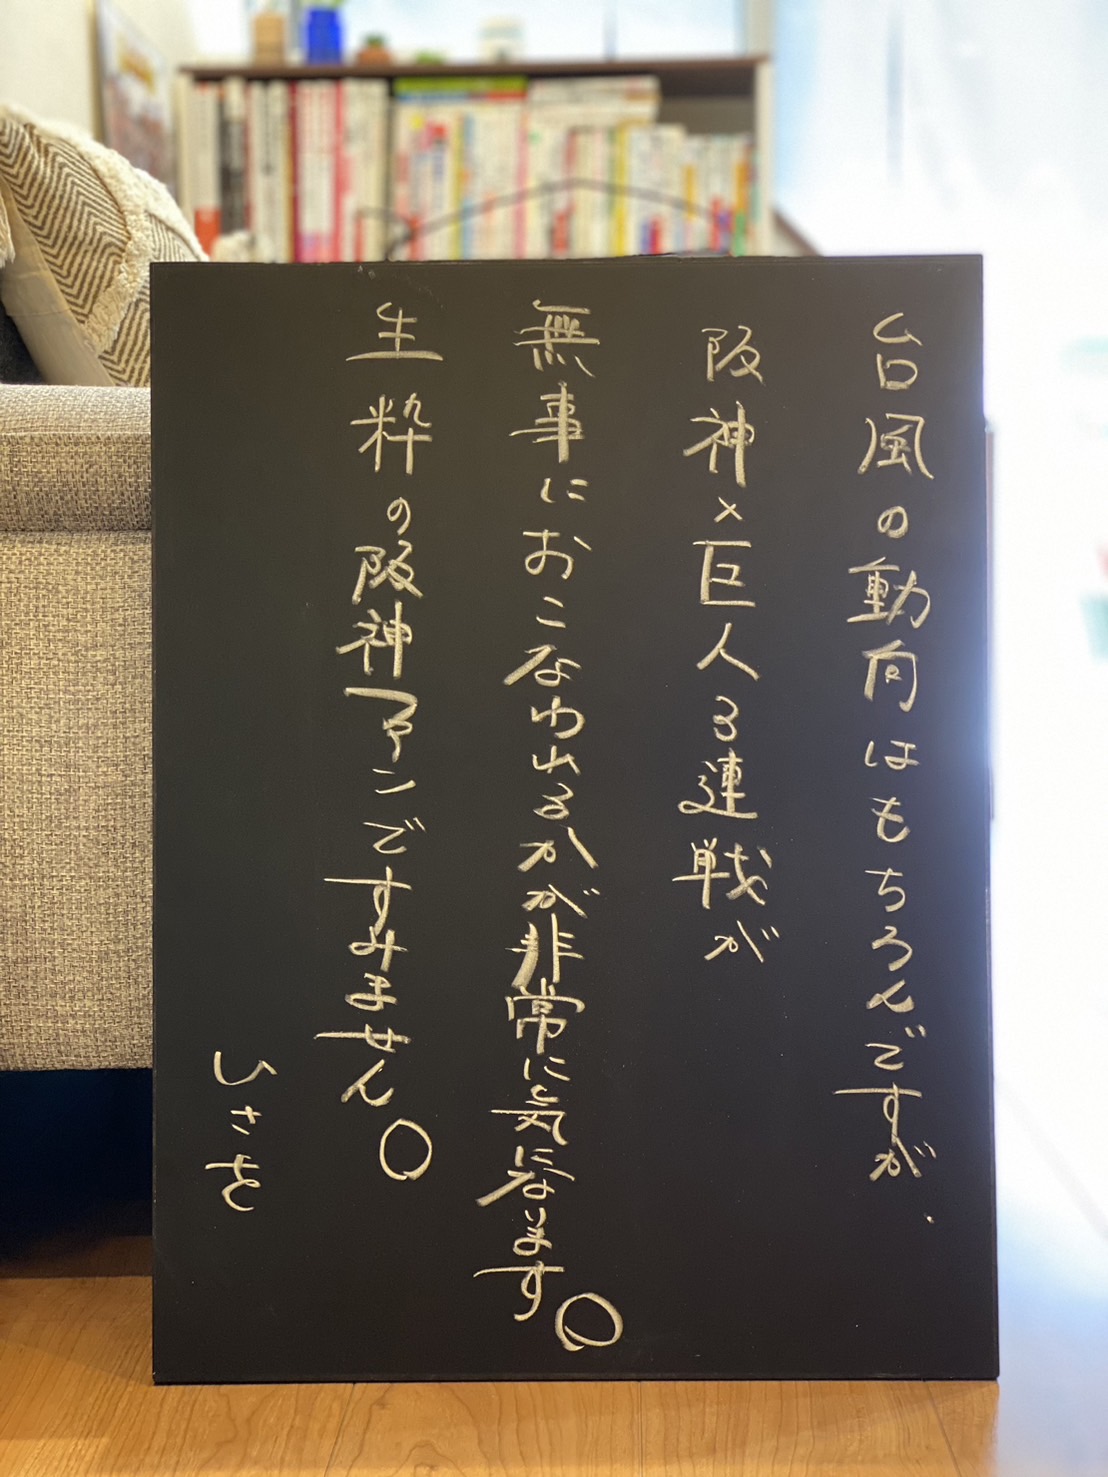 台風の動向はもちろんですが、
阪神×巨人3連戦が
無事におこなわれるかが非常に気になります。
生粋の阪神ファンですみません。
ひさを